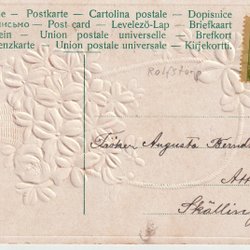 e – Postkarte – Cartolina postale – Dopisnice
– Post card – Levelező-Lap – Briefkaart
ein – Union postale universelle – Brefkort
enzkarte – Union postale universale – Kirjekortti.
Rolfstorp
Fröken Augusta
Skällin